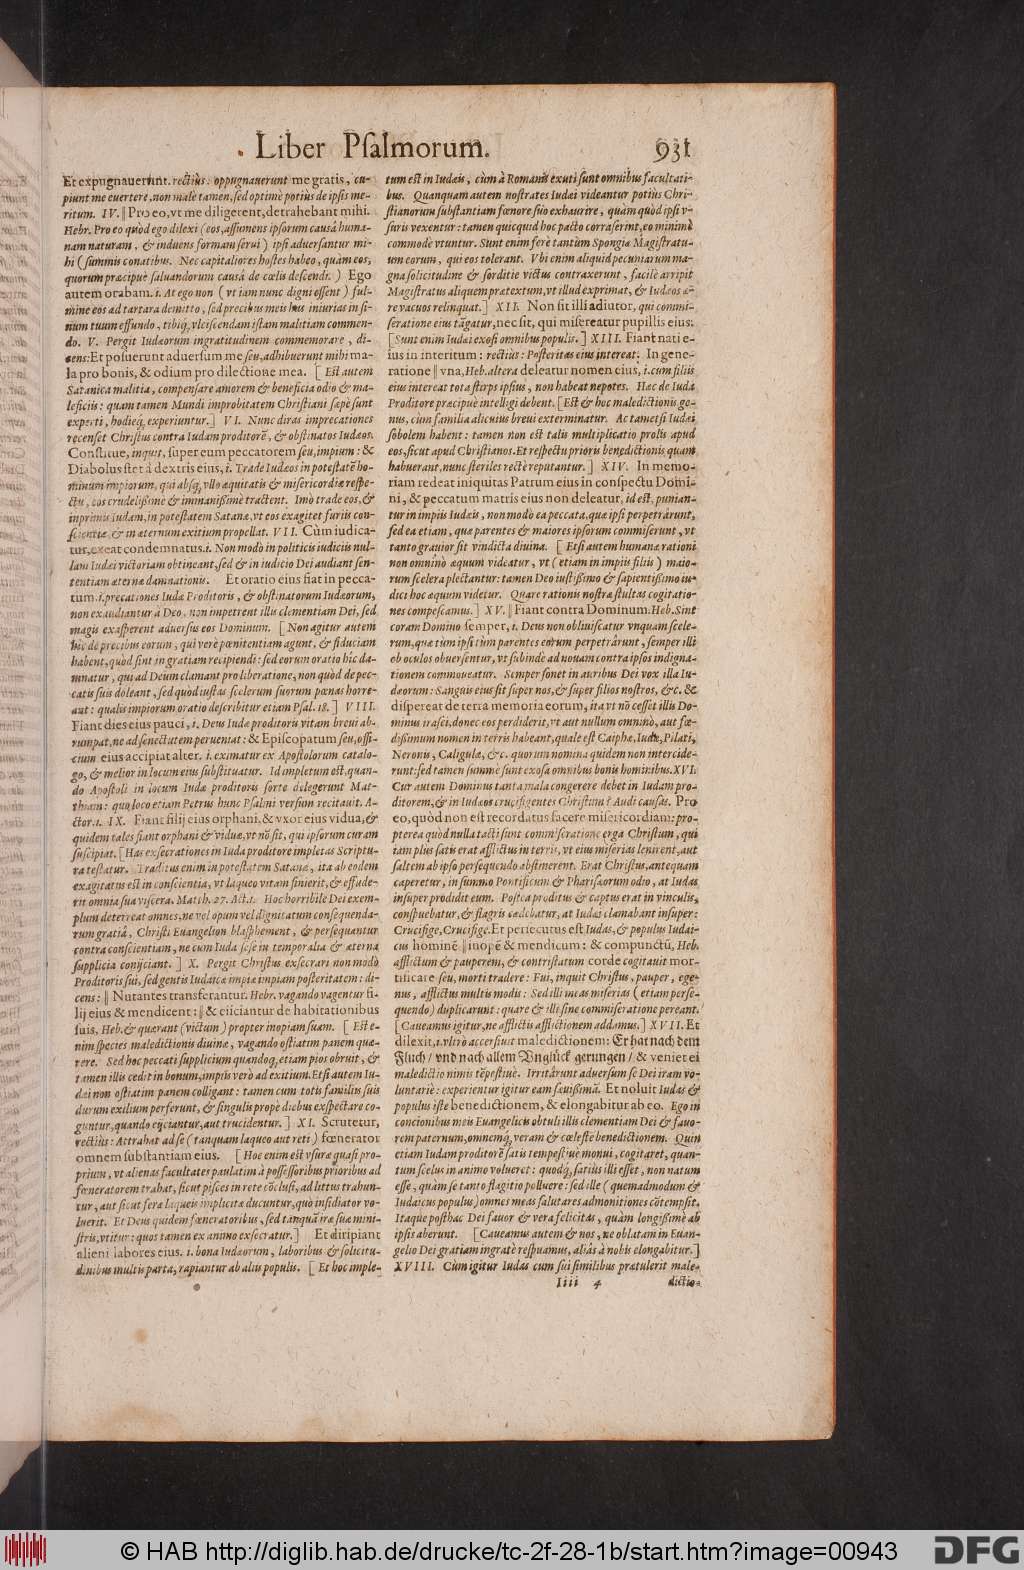 Liber Psalmorum. 931
Et expugnaverunt. rectiùs. oppugnaverunt me gratis, cu-
piunt me evertere, non malè tamen, sed optimè potiùs de ipsis me-
ritum. IV. ‖ Pro eo, vt me diligerent, detrahebant mihi.
Hebr. Pro eo quòd ego dilexi (eos, assumens ipsorum causâ huma-
nam naturam, & induens formam servi) ipsi adversantur mi-
hi (summis conatibus. Nec capitaliores hostes habeo, quàm eos,
quorum præcipuè salvandorum causâ de cœlis descendi.) Ego
autem orabam. i. At ego non (vt iam nunc digni essent) ful-
mine eos ad tartara demitto, sed precibus meis has iniurias in si-
num tuum effundo, tibiq́, vlciscendam istam malitiam commen-
do. V. Pergit Iudæorum ingratitudinem commemorare, di-
cens: Et posuerunt adversum me seu, adhibuerunt mihi ma-
la pro bonis, & odium pro dilectione mea. [Est autem
Satanica malitia, compensare amorem & beneficia odio & ma-
leficiis: quam tamen Mundi improbitatem Christiani sæpè sunt
experti, hodieq́, experiuntur.] VI. Nunc diras imprecationes
recenset Christus contra Iudam proditorē, & obstinatos Iudæos.
Constitue, inquit, super eum peccatorem seu, impium: &
Diabolus stet à dextris eius, i. Trade Iudæos in potestatē ho-
minum impiorum, qui absq́, vllo æquitatis & misericordiæ respe-
ctu, eos crudelissimè & immanissimè tractent. Imò trade eos, &
inprimis Iudam, in potestatem Satanæ, vt eos exagitet furiis con-
scientiæ, & in æternum exitium propellat. VII. Cùm iudica-
tus, exeat condemnatus. i. Non modò in politicis iudiciis nul-
lam Iudæi victoriam obtineant, sed & in iudicio Dei audiant sen-
tentiam æternæ damnationis. Et oratio eius fiat in pecca-
tum. i. precationes Iudæ Proditoris, & obstinatorum Iudæorum,
non exaudiantur à Deo, non impetrent illis clementiam Dei, sed
magis exasperent adversus eos Dominum. [Non agitur autem
hîc de precibus eorum, qui verè pœnitentiam agunt, & fiduciam
habent, quòd sint in gratiam recipiendi: sed eorum oratio hîc da-
mnatur, qui ad Deum clamant pro liberatione, non quòd de pec-
catis suis doleant, sed quòd iustas scelerum suorum pœnas horre-
ant: qualis impiorum oratio describitur etiam Psal. 18.] VIII.
Fiant dies eius pauci, i. Deus Iudæ proditoris vitam brevi ab-
rumpat, ne ad senectatem perveniat: & Episcopatum seu, offi-
cium eius accipiat alter. i. eximatur ex Apostolorum catalo-
go, & melior in locum eius substituatur. Id impletum est, quan-
do Apostoli in locum Iudæ proditoris sorte delegerunt Mat-
thiam: quo loco etiam Petrus hunc Psalmi versum recitavit. A-
ctor. 1. IX. Fiant filij eius orphani, & vxor eius vidua, &
quidem tales fiant orphani & viduæ, vt nō sit, qui ipsorum curam
suscipiat. [Has exsecrationes in Iuda proditore impletas Scriptu-
ra testatur. Traditus enim in potestatem Satanæ, ita ab eodem
exagitatus est in conscientia, vt laqueo vitam finierit, & effude-
rit omnia sua viscera. Matth. 27. Act. 1. Hoc horribile Dei exem-
plum deterreat omnes, ne vel opum vel dignitatum consequenda-
rum gratiâ, Christi Euangelion blasphement, & persequantur
contra conscientiam, ne cum Iuda sese in temporalia & æterna
supplicia conijciant.] X. Pergit Christus exsecrari non modò
Proditoris sui, sed gentis Iudaicæ impiæ impiam posteritatem: di-
cens: ‖ Nutantes transferantur. Hebr. vagando vagentur fi-
lij eius & mendicent: ‖ & eiiciantur de habitationibus
suis, Heb. & quærant (victum) propter inopiam suam. [Est e-
nim species maledictionis divinæ, vagando ostiatim panem quæ-
rere. Sed hoc peccati supplicium quandoq́, etiam pios obruit, &
tamen illis cedit in bonum, impiis verò ad exitium. Etsi autem Iu-
dæi non ostiatim panem colligant: tamen cum totis familiis suis
durum exilium perferunt, & singulis propè diebus exspectare co-
guntur, quando eijciantur, aut trucidentur.] XI. Scrutetur,
rectiùs: Attrahat ad se (tanquam laqueo aut reti) fœnerator
omnem substantiam eius. [Hoc enim est vsuræ quasi pro-
prium, vt alienas facultates paulatim à possessoribus prioribus ad
fœneratorem trahat, sicut pisces in rete cōclusi, ad littus trahun-
tur, aut sicut feræ laqueis implicitæ ducuntur, quò insidiator vo-
luerit. Et Deus quidem fœneratoribus, sed tanquā iræ suæ mini-
stris, vtitur: quos tamen ex animo exsecratur.] Et diripiant
alieni labores eius. i. bona Iudæorum, laboribus & solicitu-
dinibus multis parta, rapiantur ab aliis populis. [Et hoc imple-
tum est in Iudæis, cùm à Romanis exuti sunt omnibus facultati-
bus. Quanquam autem nostrates Iudæi videantur potiùs Chri-
stianorum substantiam fœnore suo exhaurire, quàm quòd ipsi v-
suris vexentur: tamen quicquid hoc pacto corraserint, eo minimè
commodè vtuntur. Sunt enim ferè tantùm Spongia Magistratu-
um eorum, qui eos tolerant. Vbi enim aliquid pecuniarum ma-
gna solicitudine & sorditie victus contraxerunt, facilè arripit
Magistratus aliquem prætextum, vt illud exprimat, & Iudæos æ-
re vacuos relinquat.] XII. Non sit illi adiutor, qui commi-
seratione eius tāgatur, nec sit, qui misereatur pupillis eius:
[Sunt enim Iudæi exosi omnibus populis.] XIII. Fiant nati e-
ius in interitum: rectiùs: Posteritas eius intereat. In gene-
ratione ‖ vna, Heb. altera deleatur nomen eius, i. cum filiis
eius intereat tota stirps ipsius, non habeat nepotes. Hæc de Iuda
Proditore præcipuè intelligi debent. [Est & hoc maledictionis ge-
nus, cùm familia alicuius brevi exterminatur. Ac tametsi Iudæi
sobolem habent: tamen non est talis multiplicatio prolis apud
eos, sicut apud Christianos. Et respectu prioris benedictionis quam
habuerant, nunc steriles rectè reputantur.] XIV. In memo-
riam redeat iniquitas Patrum eius in conspectu Domi-
ni, & peccatum matris eius non deleatur, id est, punian-
tur in impiis Iudæis, non modò ea peccata, quæ ipsi perpetrârunt,
sed ea etiam, quæ parentes & maiores ipsorum commiserunt, vt
tanto gravior sit vindicta divina. [Etsi autem humanæ rationi
non omninò æquum videatur, vt (etiam in impiis filiis) maio-
rum scelera plectantur: tamen Deo iustissimo & sapientissimo iu-
dici hoc æquum videtur. Quare rationis nostræ stultas cogitatio-
nes compescamus.] XV. ‖ Fiant contra Dominum. Heb. Sint
coram Domino semper, i. Deus non obliviscatur vnquam scele-
rum, quæ tùm ipsi tùm parentes eorum perpetrârunt, semper illi
ob oculos obversentur, vt subinde ad novam contra ipsos indigna-
tionem commoveatur. Semper sonet in auribus Dei vox illa Iu-
dæorum: Sanguis eius sit super nos, & super filios nostros, &c. &
dispereat de terra memoria eorum, ita vt nō cesset illis Do-
minus irasci, donec eos perdiderit, vt aut nullum omninò, aut fœ-
dissimum nomen in terris habeant, quale est Caiphæ, Iudæ, Pilati,
Neronis, Caligulæ, &c. quorum nomina quidem non intercide-
runt: sed tamen summè sunt exosa omnibus bonis hominibus. XVI.
Cur autem Dominus tanta mala congerere debet in Iudam pro-
ditorem, & in Iudæos crucifigentes Christum? Audi causas. Pro
eo, quòd non est recordatus facere misericordiam: pro-
pterea quòd nulla tacti sunt commiseratione erga Christum, qui
tam plus satis erat afflictus in terris, vt eius miserias lenirent, aut
saltem ab ipso persequendo abstinerent. Erat Christus, antequam
caperetur, in summo Pontificum & Pharisæorum odio, at Iudas
insuper prodidit eum. Postea proditus & captus erat in vinculis,
conspuebatur, & flagris cædebatur, at Iudæi clamabant insuper:
Crucifige, Crucifige. Et persecutus est Iudas, & populus Iudai-
cus hominē ‖ inopē & mendicum: & compunctū, Heb.
afflictum & pauperem, & contristatum corde cogitavit mor-
tificare seu, morti tradere: Fui, inquit Christus, pauper, ege-
nus, afflictus multis modis: Sed illi meas miserias (etiam perse-
quendo) duplicarunt: quare & illi sine commiseratione pereant.
[Caveamus igitur, ne afflictis afflictionem addamus.] XVII. Et
dilexit, i. vltrò accersivit maledictionem: Er hat nach dem
Fluch/ vnd nach allem Vnglück gerungen/ & veniet ei
maledictio nimis tēpestivè. Irritârunt adversum se Dei iram vo-
luntariè: experientur igitur eam sævissimā. Et noluit Iudas &
populus iste benedictionem, & elongabitur ab eo. Ego in
concionibus meis Euangelicis obtuli illis clementiam Dei & favo-
rem paternum, omnemq́, veram & cœleste benedictionem. Quin
etiam Iudam proditorē satis tempestivè monui, cogitaret, quan-
tum scelus in animo volveret: quodq́, satius illi esset, non natum
esse, quàm se tanto flagitio polluere: sed ille (quemadmodum &
Iudaicus populus) omnes meas salutares admonitiones cōtempsit.
Itaque posthac Dei favor & vera felicitas, quàm longissimè ab
ipsis aberunt. [Caveamus autem & nos, ne oblatam in Euan-
gelio Dei gratiam ingratè respuamus, aliàs à nobis elongabitur.]
XVIII. Cùm igitur Iudas cum sui similibus prætulerit male-
Iiii 4 dictio-
© HAB http://diglib.hab.de/drucke/tc-2f-28-1b/start.htm?image=00943
DFG